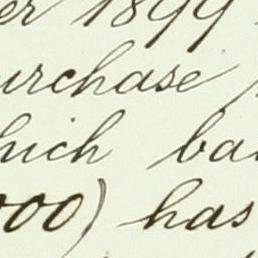 er 1899
urchase
hich ba
000) has